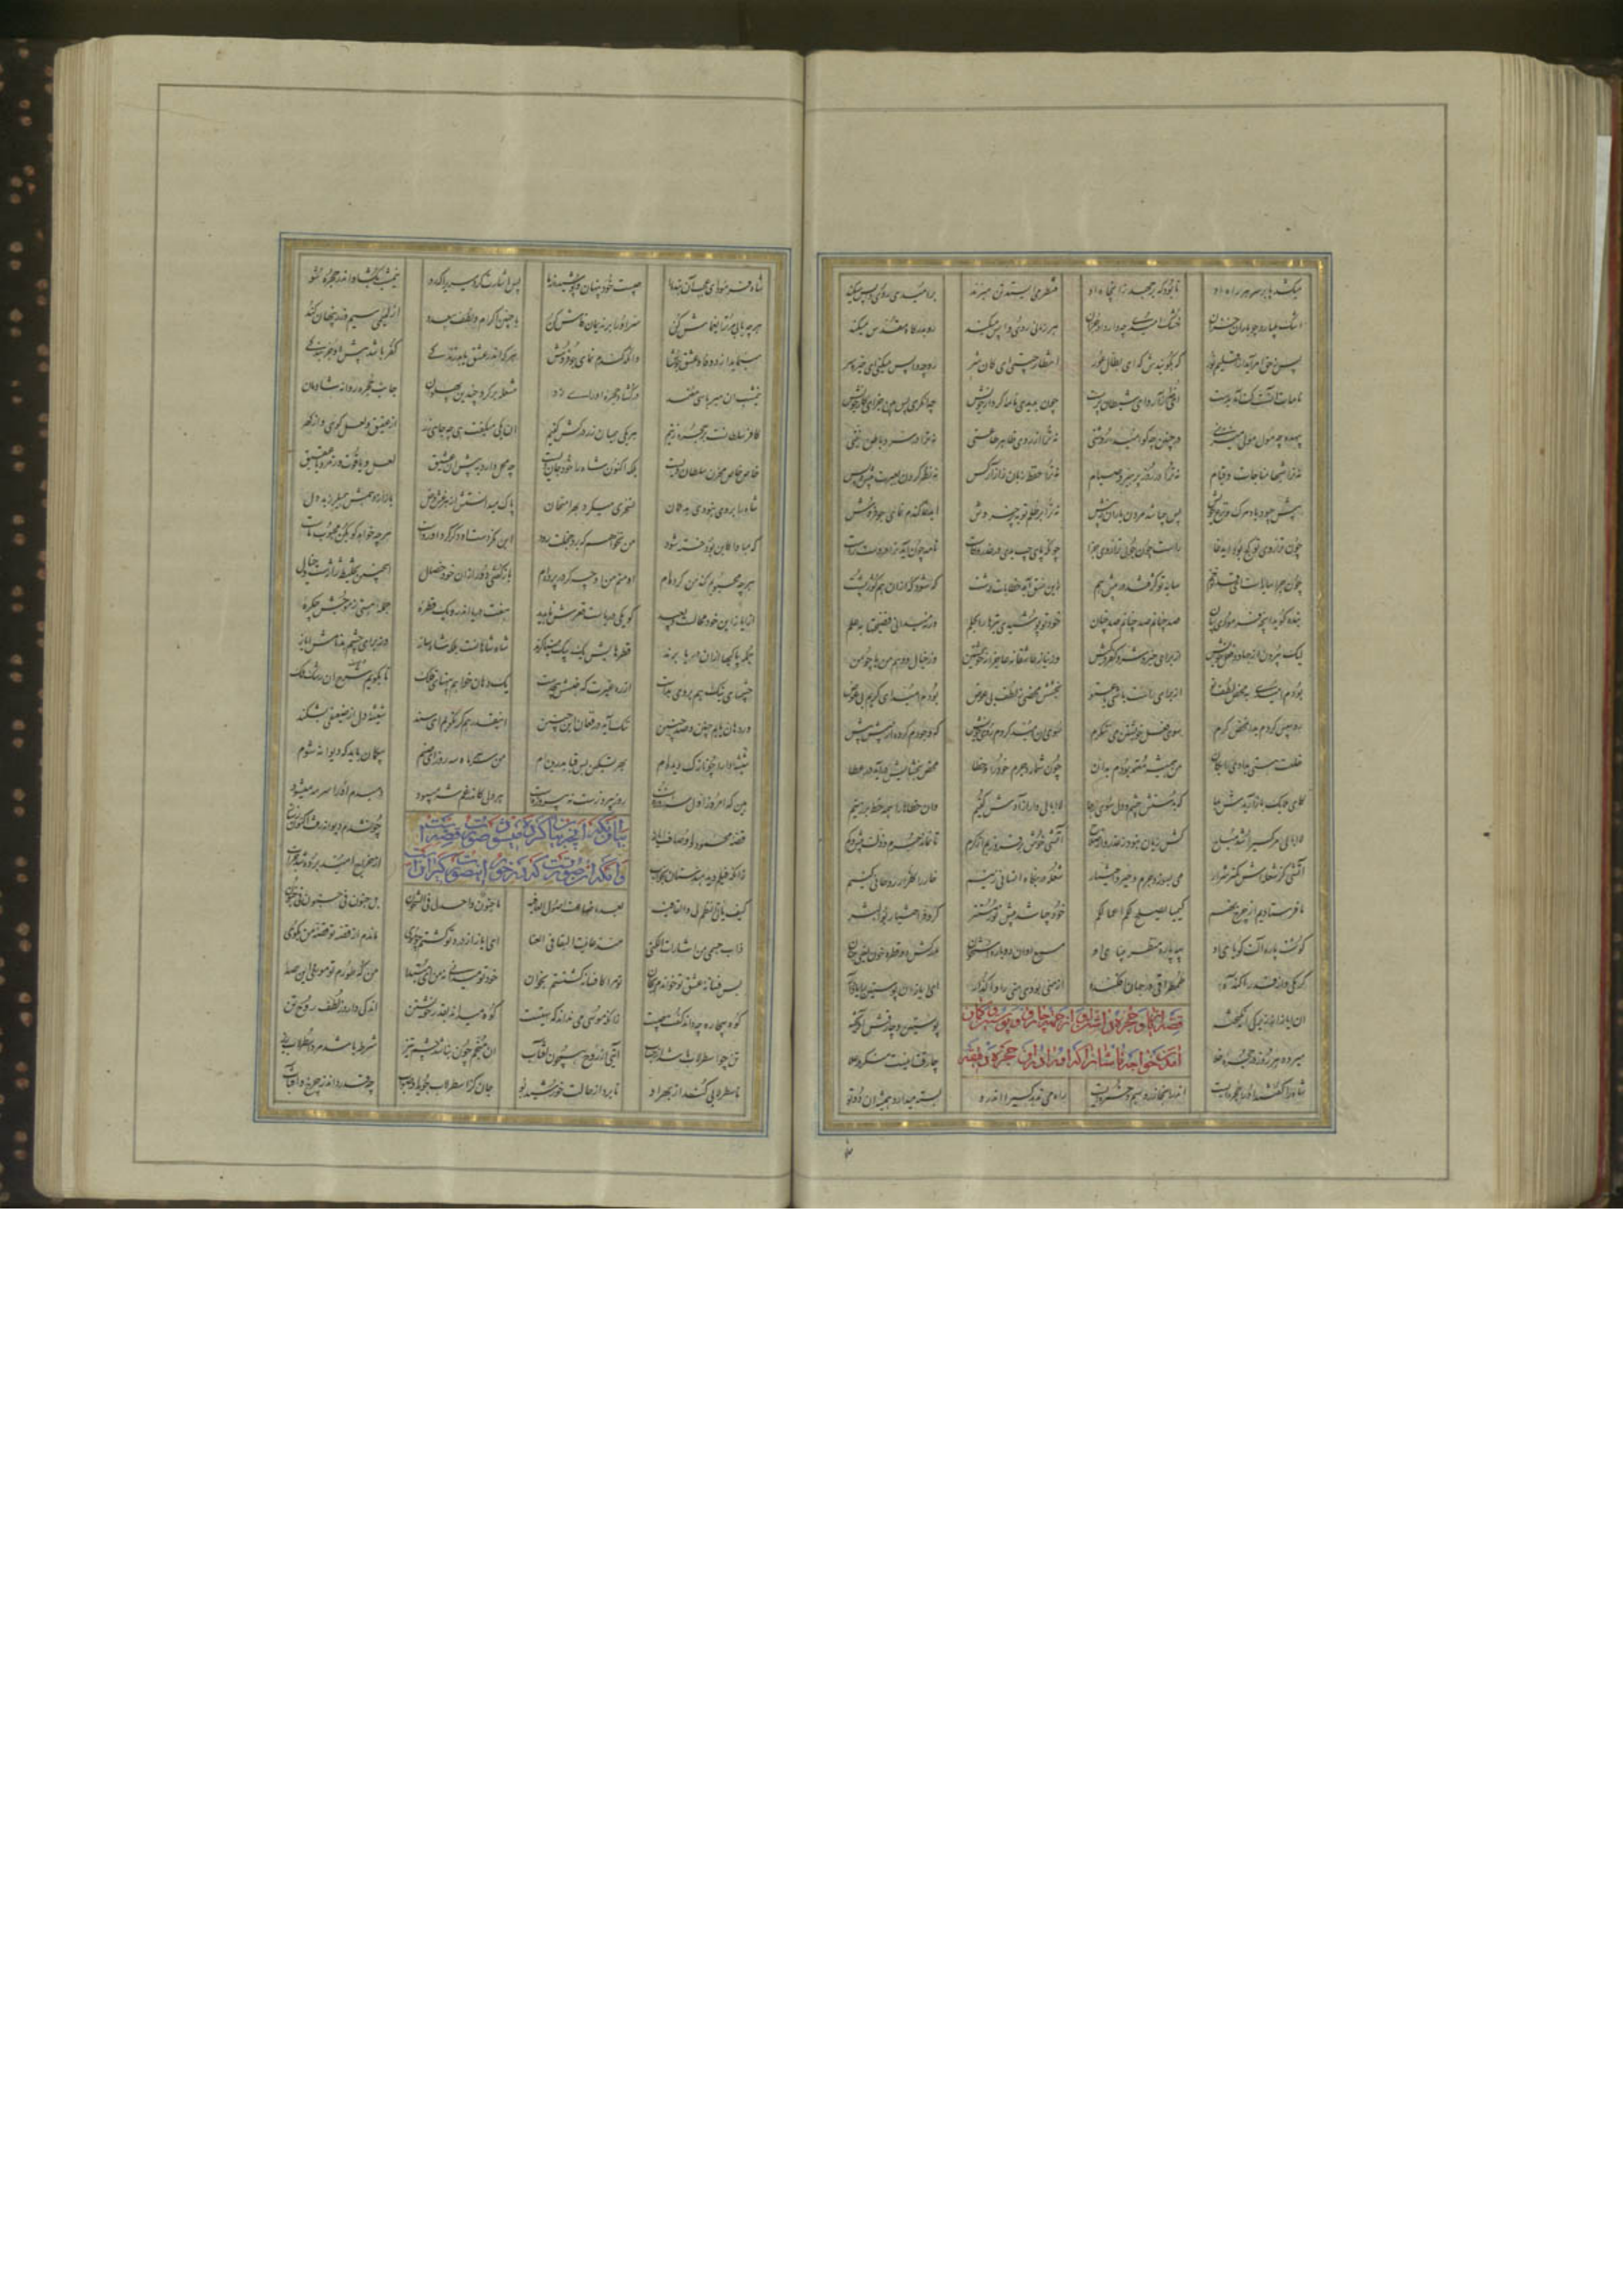 میکشد پا بر سر هر راه او تا بود که بر جهد زان چاه او منتظر می ایستد تن میزند بر امیدی روی واپس میکند
اشک میبارد چو باران خزان خشک امیدی چه دارد او جز آن هر زمانی روی واپس میکند رو بدرگاه مقدس میکند
پس ز حق امر آید از اقلیم نور که بگوییدش که ای بطال عور انتظار چیستی ای کان شر رو چه واپس میکنی ای خیره سر
نامه‌ات آنست کت آمد بدست ای خدا آزار و ای شیطان پرست چون بدیدی نامه کردار خویش چه نگری پس بین جزای کار خویش
بیهده چه مول مولی میزنی در چنین چه کو امید روشنی نه ترا از روی ظاهر طاعتی نه ترا در سر و باطن نیتی
نه ترا شبها مناجات و قیام نه ترا در روز پرهیز و صیام نه ترا حفظ زبان ز آزار کس نه نظر کردن بعبرت پیش و پس
پیش چه بود یاد مرگ و نزع خویش پس چه باشد مردن یاران ز پیش نه ترا بر ظلم توبه پر خروش ای دغا گندم نمای جو فروش
چون ترازوی تو کژ بود و دغا راست چون جویی ترازوی جزا چونکه پای چپ بدی در غدر و کاست نامه چون آید ترا در دست راست
چون جزا سایه است ای قد تو خم سایه تو کژ فتد در پیش هم زین قبل آید خطابات درشت که شود که را از آن هم کوژ پشت
بنده گوید آنچه فرمودی بیان صد چنانم صد چنانم صد چنان خود تو پوشیدی بترها را بحلم ورنه میدانی فضیحتها بعلم
لیک بیرون از جهاد و فعل خویش از ورای خیر و شر و کفر و کیش وز نیاز عاجزانه خویشتن وز خیال و وهم من
بودم امیدی به محض لطف تو از ورای راست باشی یا عتو بخشش محضی ز لطف بی عوض بودم امید ای کریم بی غرض
رو سپس کردم بدان محض کرم سوی فعل خویشتن می ننگرم سوی آن امید کردم روی خویش که وجودم از پیش پیش
خلعت هستی بدادی رایگان من همیشه معتمد بودم بر آن چون شمارد جرم خود را و خطا محض بخشایش در آید در عطا
کای ملایک باز آریدش بما که بدستش چشم دل سوی رجا لاابالی وار آزادش کنیم وان خطاها را همه خط بر زنیم
لاابالی مر کسی را شد کش زیان نبود ز غدر و از صلاح آتشی خوش بر فروزیم از کرم تا نماند جرم و زلت بیش و کم
آتشی کز شعله اش کمتر شرار می بسوزد جرم و جبر و اختیار شعله در بنگاه انسانی زنیم خار را گلزار روحانی کنیم
ما فرستادیم از چرخ نهم کیمیا یصلح لکم اعمالکم خود چه باشد پیش نور مستقر کر و فر اختیار بوالبشر
گوشت پاره آلت گویای او پیه پاره منظر بینای او مسمع او آن دو پاره استخوان مدرکش دو قطره خون یعنی جنان
کرمکی و از قذر آکنده طمطراقی در جهان افکنده از منی بودی منی را واگذار ای ایاز آن پوستین را یاد آر
آن ایاز از زیرکی انگیخته پوستین و چارقش آویخته
قصه ایاز و حجره داشتن او از جهت چارق و پوستین و گمان
آمدن خواجه تاشانرا که او را در آن حجره دفینه
میرود هر روز در حجره خلا چارقت اینست منگر در علا
شاه را گفتند او را حجره ایست اندر آنجا زر و سیم و خمره ایست راه می ندهد کسی را اندرو بسته میدارد همیشه آن در او
شاه فرمود ای عجب آن بنده را چیست خود پنهان و پوشیده ز ما پس اشارت کرد میری را که رو نیمشب بگشای و اندر حجره شو
هر چه یابی مر ترا یغماش کن سر او را بر ندیمان فاش کن با چنین اکرام و لطف بیعدد از لئیمی سیم و زر پنهان کند
مینماید او وفا و عشق و جوش وانگه او گندم نمای جو فروش هر که اندر عشق یابد زندگی کفر باشد پیش او جز بندگی
نیمشب آن میر با سی معتمد در گشاد حجره او رای زد مشعله بر کرده چندین پهلوان جانب حجره روانه شادمان
کامر سلطانست بر حجره زنیم هر یکی همیان زر در کش کنیم آن یکی میگفت هی چه جای زر از عقیق و لعل گوی و از گهر
خاص خاص مخزن سلطان ویست بلکه اکنون شاه را خود جان ویست چه محل دارد به پیش این عشیق لعل و یاقوت و زمرد یا عقیق
شاه را بر وی نبودی بد گمان تسخری میکرد بهر امتحان پاک میدانستش از هر غش و غل باز از وهمش همیلرزید دل
که مبادا کاین بود خسته شود من نخواهم که برو خجلت رود این نکردست او و گر کرد او رواست هر چه خواهد گو بکن محبوب ماست
هر چه محبوبم کند من کرده ام او منم من او چه گر در پرده ام باز گفتی دور از آن خو و خصال اینچنین تخلیط ژاژست و خیال
از ایاز این خود محالست و بعید کو یکی دریاست قعرش ناپدید هفت دریا اندرو یک قطره جمله هستی ز موجش چکره
جمله پاکیها از آن دریا برند قطره هایش یک بیک میناگرند شاه شاهانست بلکه شاه ساز وز برای چشم بد نامش ایاز
چشمهای نیک هم بر وی بدست از ره غیرت که حسنش بیحدست یک دهان خواهم بپهنای فلک تا بگویم آن رشک ملک
ور دهان یابم چنین و صد چنین تنگ آید در فغان این حنین اینقدر هم گر نگویم ای سند شیشه دل از ضعیفی بشکند
شیشه دل را چو نازک دیده ام بهر تسکین بس قبا بدریده ام من سر هر ماه سه روز ای صنم بیگمان باید که دیوانه شوم
هین که امروز اول سه روزه است روز پیروزست نه پیروزه است هر دلی کاندر غم شه میبود دمبدم او را سر مه میبود
قصه محمود و اوصاف ایاز چون شدم دیوانه رفت اکنون ز ساز
بیان آنکه آنچه بیان کرده میشود صورت قصه است
وانگه آن صورتیست که در خور این صورت گرانست
زانکه پیلم دید هندستان بخواب از خراج امید بر ده شد خراب
کیف یأتی النظم لی والقافیه بعد ما ضاعت اصول العافیه ما جنون واحد لی فی الشجون بل جنون فی جنون فی جنون
ذاب جسمی من اشارات الکنی منذ عاینت البقا فی الفنا ای ایاز از درد تو گشتم چو موی ماندم از قصه تو قصه من بگوی
بس فسانه عشق تو خواندم بجان تو مرا کافسانه گشتستم بخوان خود تو میخوانی نه من ای مقتدا من که طورم تو موسی این صدا
کوه بیچاره چه داند گفت چیست زانکه موسی می نداند که تهیست کوه میداند بقدر خویشتن اندکی دارد ز لطف روح تن
تن چو اسطرلاب باشد ز احتساب آیتی از روح همچون آفتاب آن منجم چون نباشد چشم تیز شرط باشد مرد اسطرلاب ریز
تا سطرلابی کند از بهر او تا برد از حالت خورشید بو جان کز اسطرلاب جوید او صواب چه قدر داند ز چرخ و آفتاب